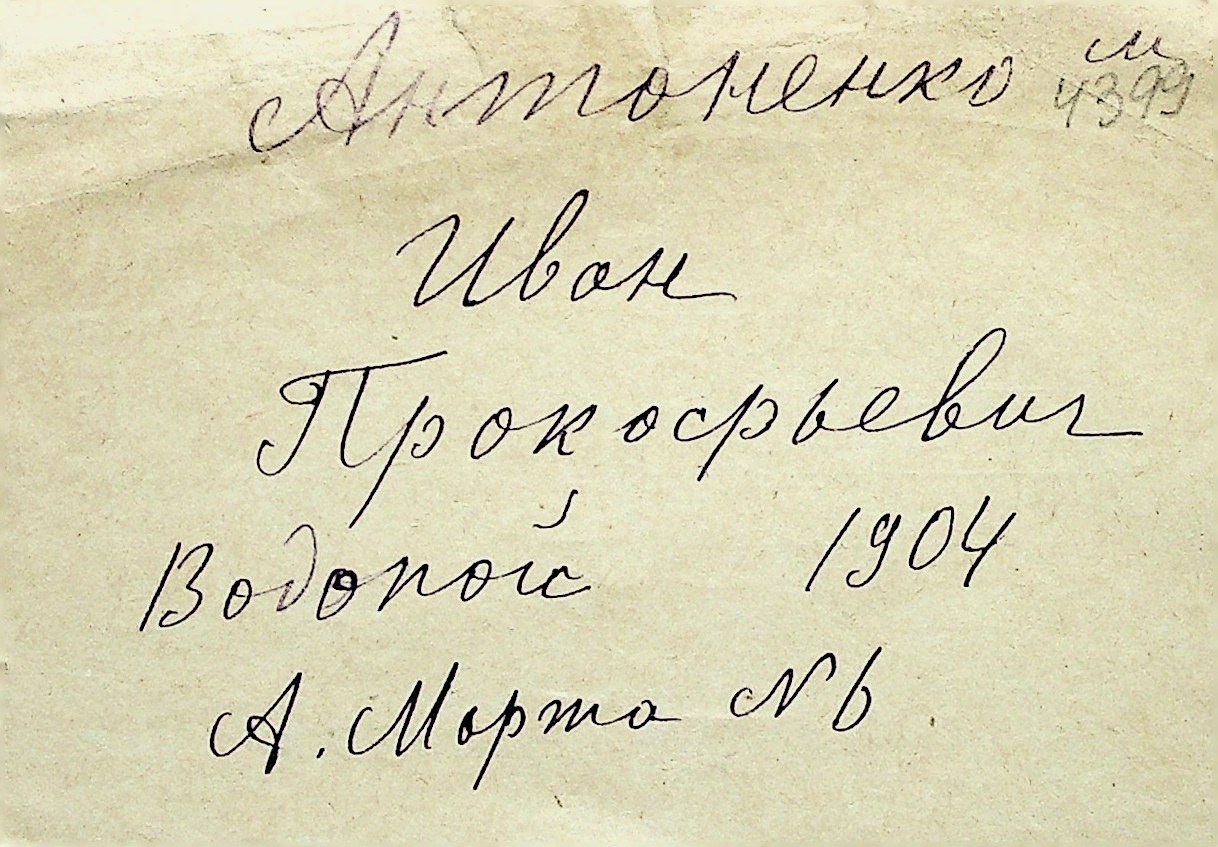 Антоненко м
4399
Иван
Прокофьевич
Водопой 1904
А. Марта № 6